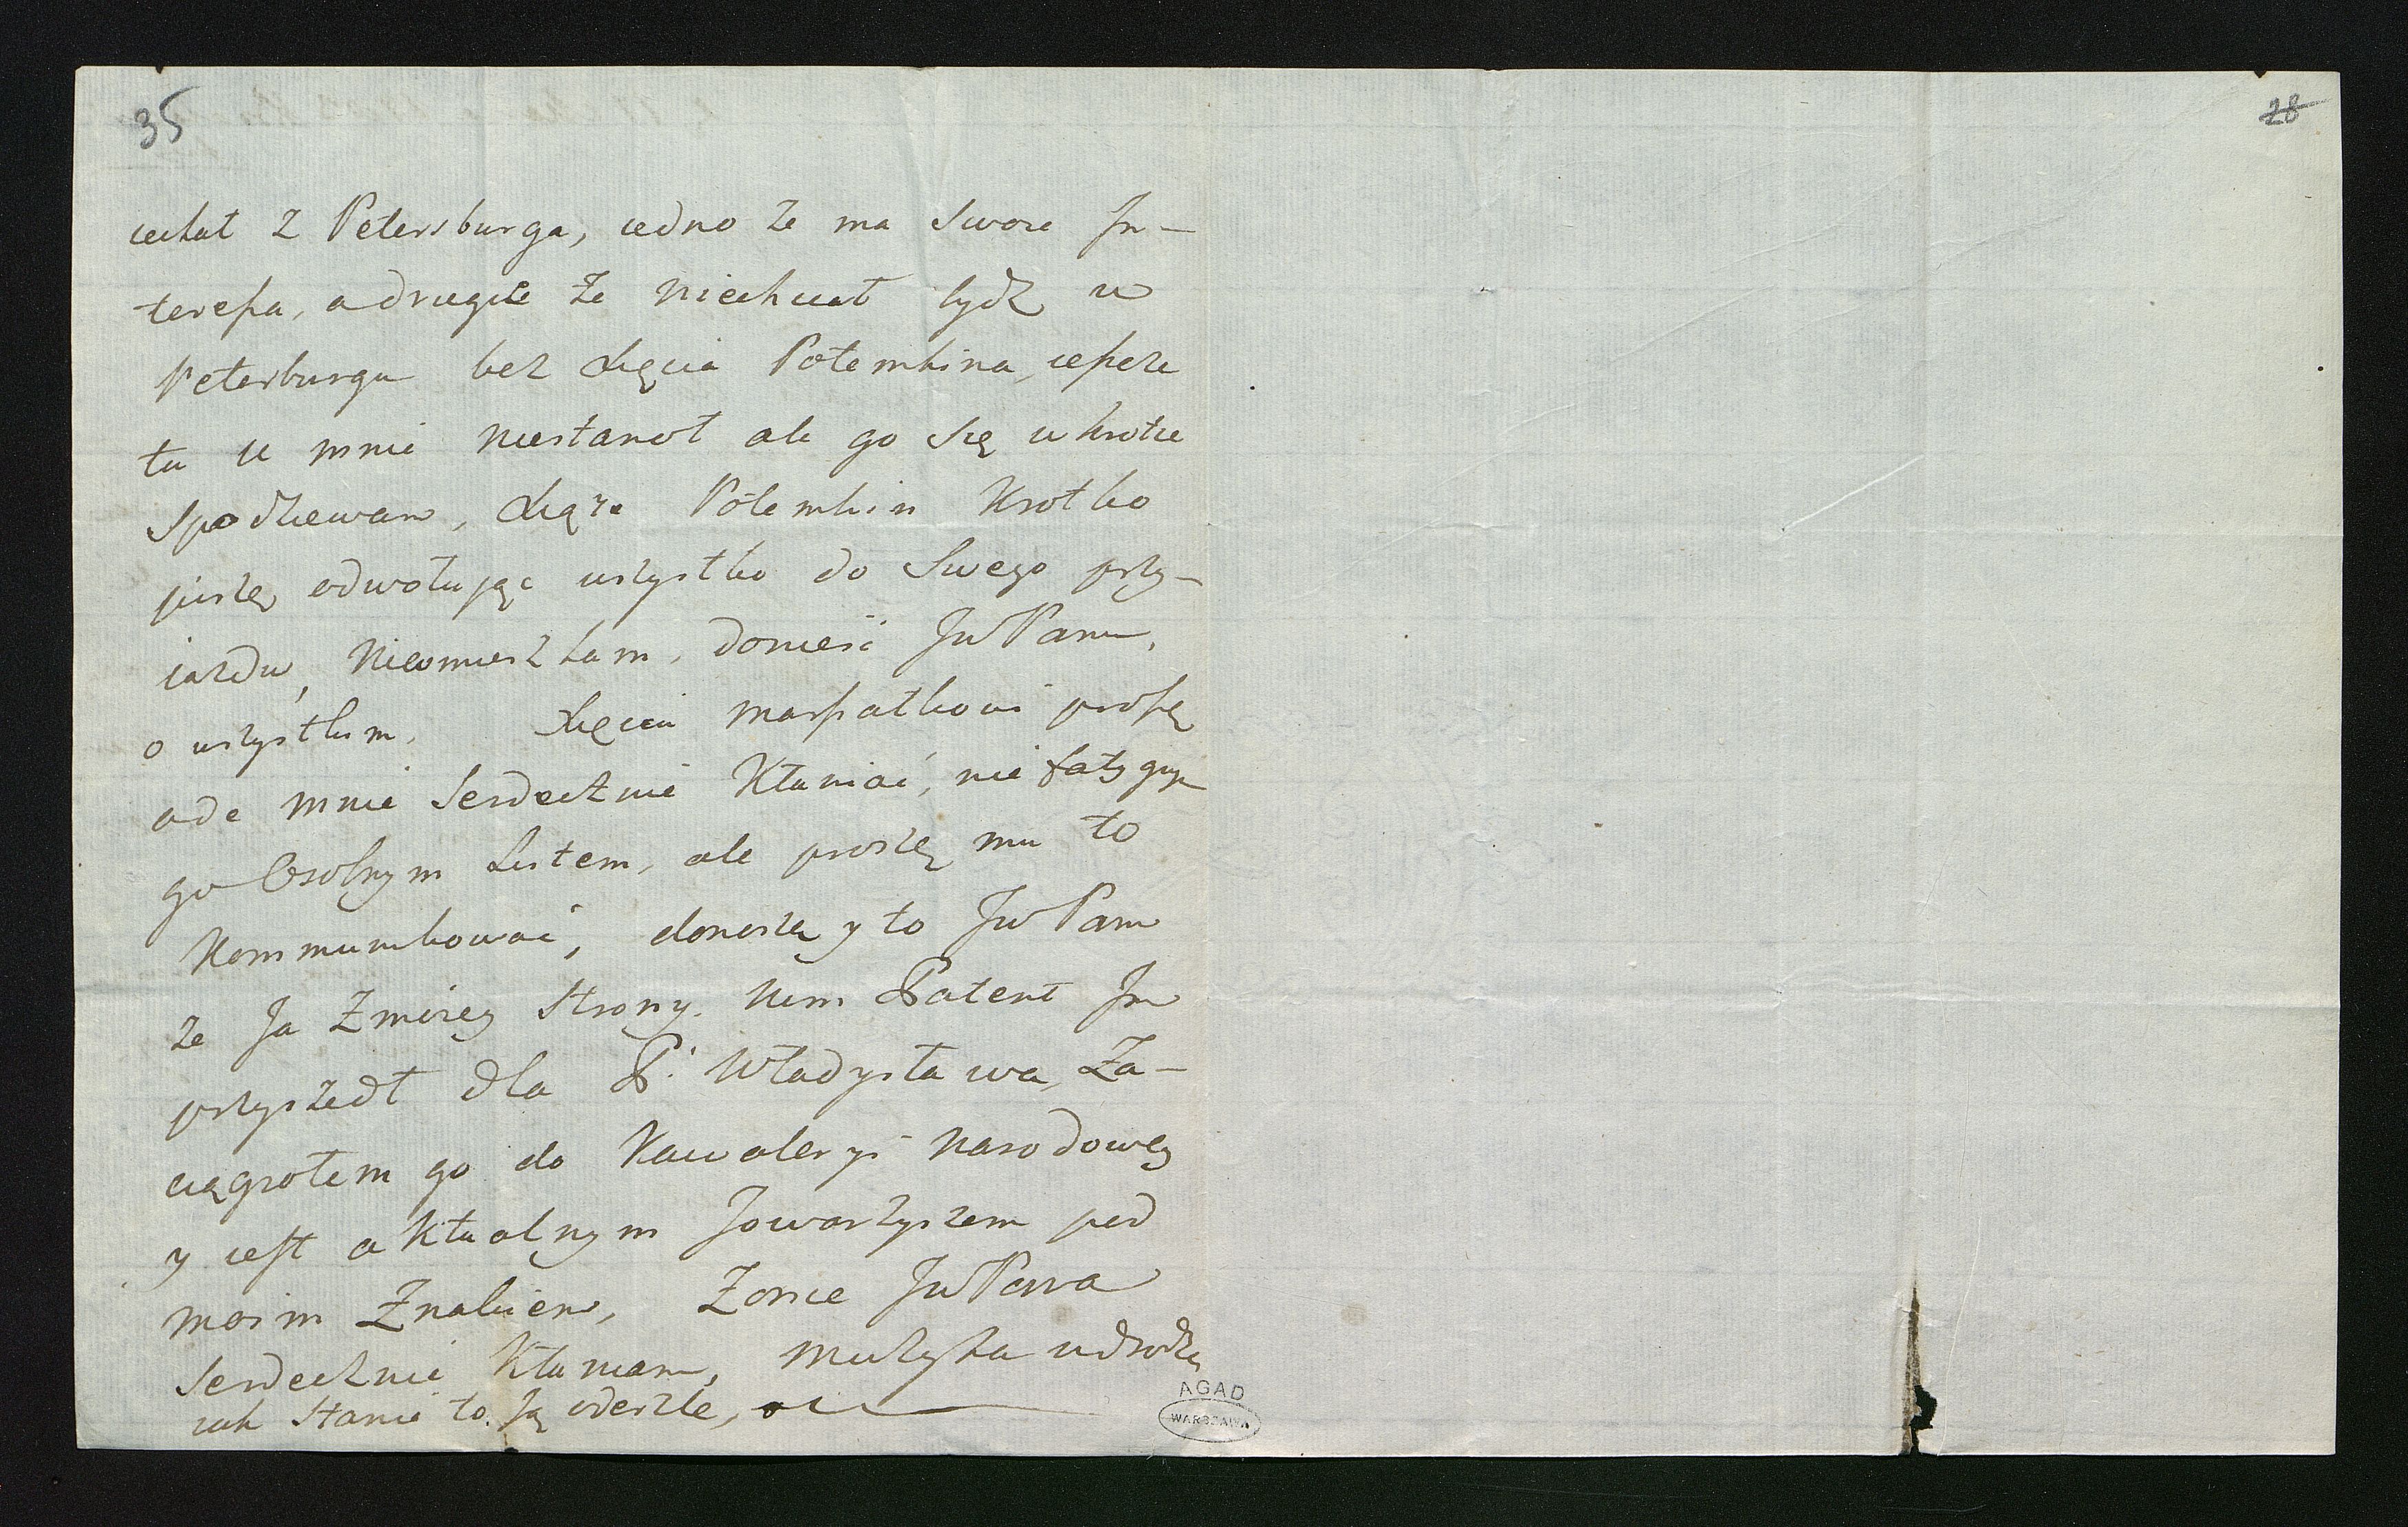 35
28
iechał z Petersburga, iedno że ma swoie In-
teresa, a drugie że niechciał bydź w
Petersburgu bez Xięcia Potemkina, ieszcze
tu u mnie niestanoł ale go się wkrotce
spodziewam, Xiąże Potemkin krotko
piszę odwołując wszystko do Swego przy-
iazdu, nieomieszkam, donieść JwPanu,
o wszystkim. Xięciu marszałkowi proszę
ode mnie serdecznie kłaniać, nie fatyguję
go Osobnym Listem, ale proszę mu to
kommunikować, donoszę y to JwPanu
że Ja z moiey strony, nim Patent Im
przyszedł dla P. Władysława, Za-
ciągnołem go do Kawaleryi narodowey
y iest aktualnym Towarzyszem pod
moim Znakiem, Zonie JwPana
serdecznie kłaniam, muzyka w drodze
iak stanie to ią odeszle,
AGAD
WARSZAWA